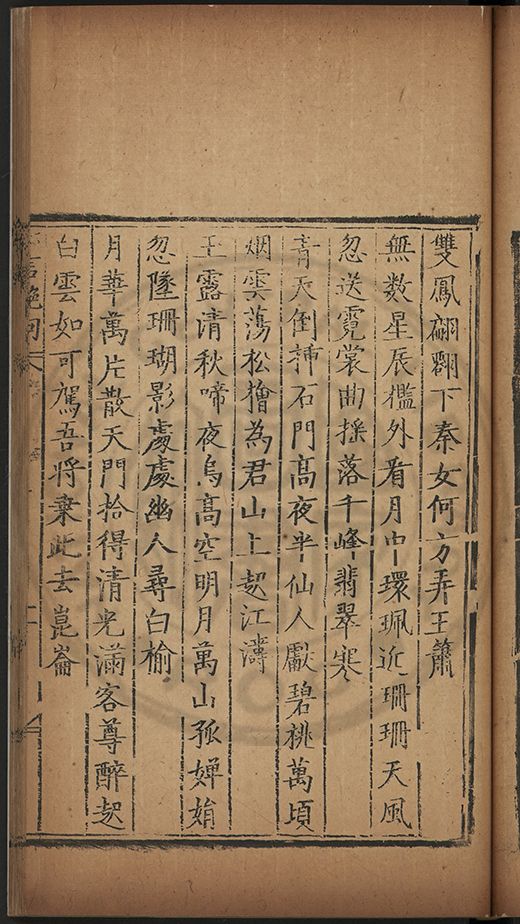 雙鳳翩翩下秦女何方弄玉簫
無数星辰檻外看月中環珮近珊珊天風
忽送霓裳曲摇落千峰翡翠寒
青天倒揷石門髙夜半仙人獻碧桃萬頃
烟雲蕩松檜為君山上起江濤
玉露清秋啼夜烏髙空明月萬山孤嬋娟
忽墜珊瑚影處處幽人尋白榆
月華萬片散天門拾得清光滿客尊醉起
白雲如可駕吾將乗此去崑崙